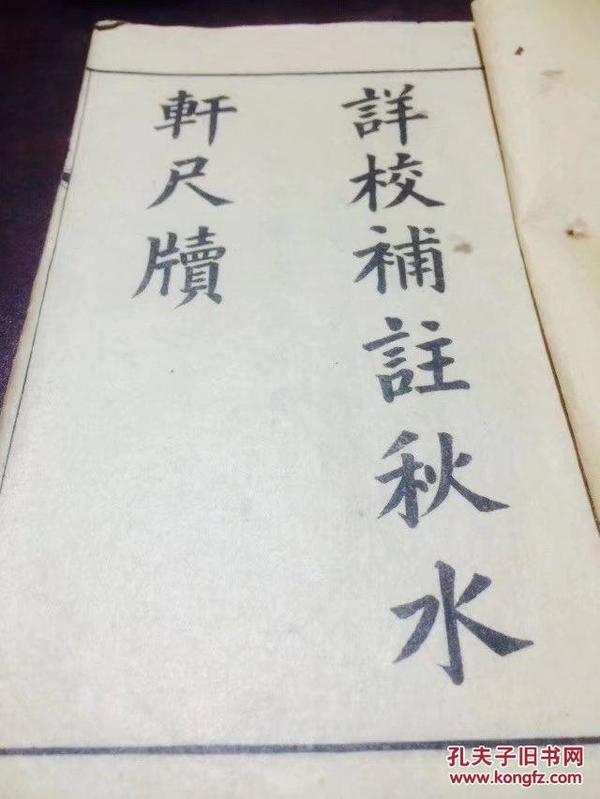 詳校補註秋水
軒尺牘
孔夫子旧书网
www.kongfz.com